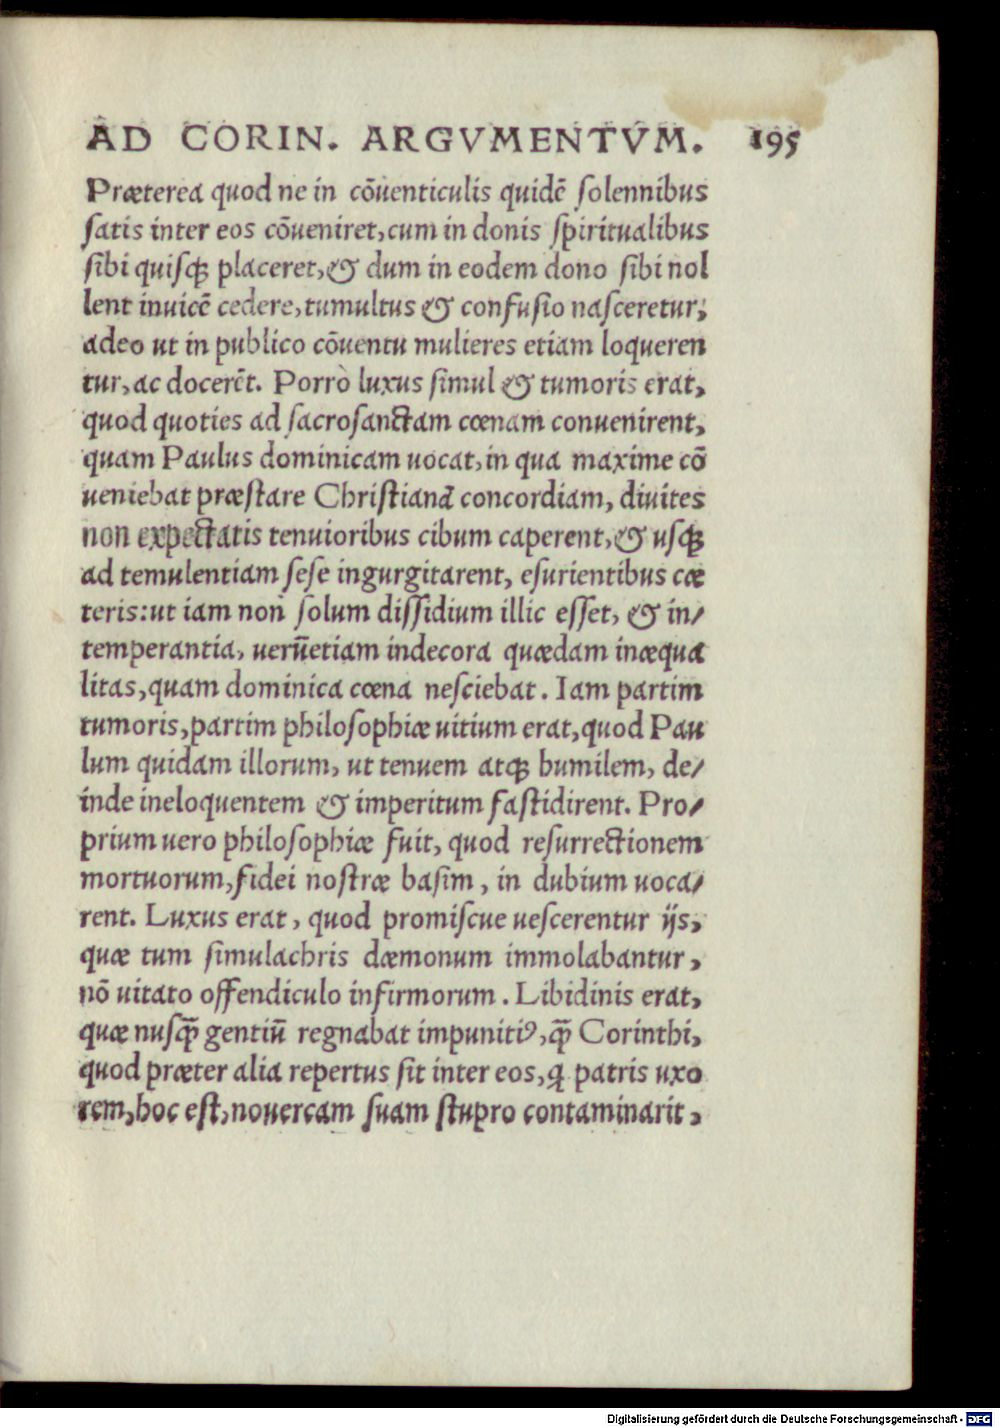 AD CORIN. ARGVMENTVM. 195
Præterea quod ne in cōuenticulis quidē ſolennibus
ſatis inter eos cōueniret, cum in donis ſpiritualibus
ſibi quiſqꝫ placeret, & dum in eodem dono ſibi nol
lent inuicē cedere, tumultus & confuſio naſceretur,
adeo ut in publico cōuentu mulieres etiam loqueren
tur, ac docerēt. Porrò luxus ſimul & tumoris erat,
quod quoties ad ſacroſanctam cœnam conuenirent,
quam Paulus dominicam uocat, in qua maxime cō
ueniebat præſtare Chriſtianā concordiam, diuites
non expectatis tenuioribus cibum caperent, & uſqꝫ
ad temulentiam ſeſe ingurgitarent, eſurientibus cæ
teris: ut iam non ſolum diſſidium illic eſſet, & in/
temperantia, uerūetiam indecora quædam inæqua
litas, quam dominica cœna neſciebat. Iam partim
tumoris, partim philoſophiæ uitium erat, quod Pau
lum quidam illorum, ut tenuem atqꝫ humilem, de/
inde ineloquentem & imperitum faſtidirent. Pro/
prium uero philoſophiæ fuit, quod reſurrectionem
mortuorum, fidei noſtræ baſim, in dubium uoca/
rent. Luxus erat, quod promiſcue ueſcerentur ijs,
quæ tum ſimulachris dæmonum immolabantur,
nō uitato offendiculo infirmorum. Libidinis erat,
quæ nuſꝙ̄ gentiū regnabat impunitiꝰ, ꝙ̄ Corinthi,
quod præter alia repertus ſit inter eos, ꝗ patris uxo
rem, hoc eſt, nouercam ſuam ſtupro contaminarit,
Digitalisierung gefördert durch die Deutsche Forschungsgemeinschaft - DFG